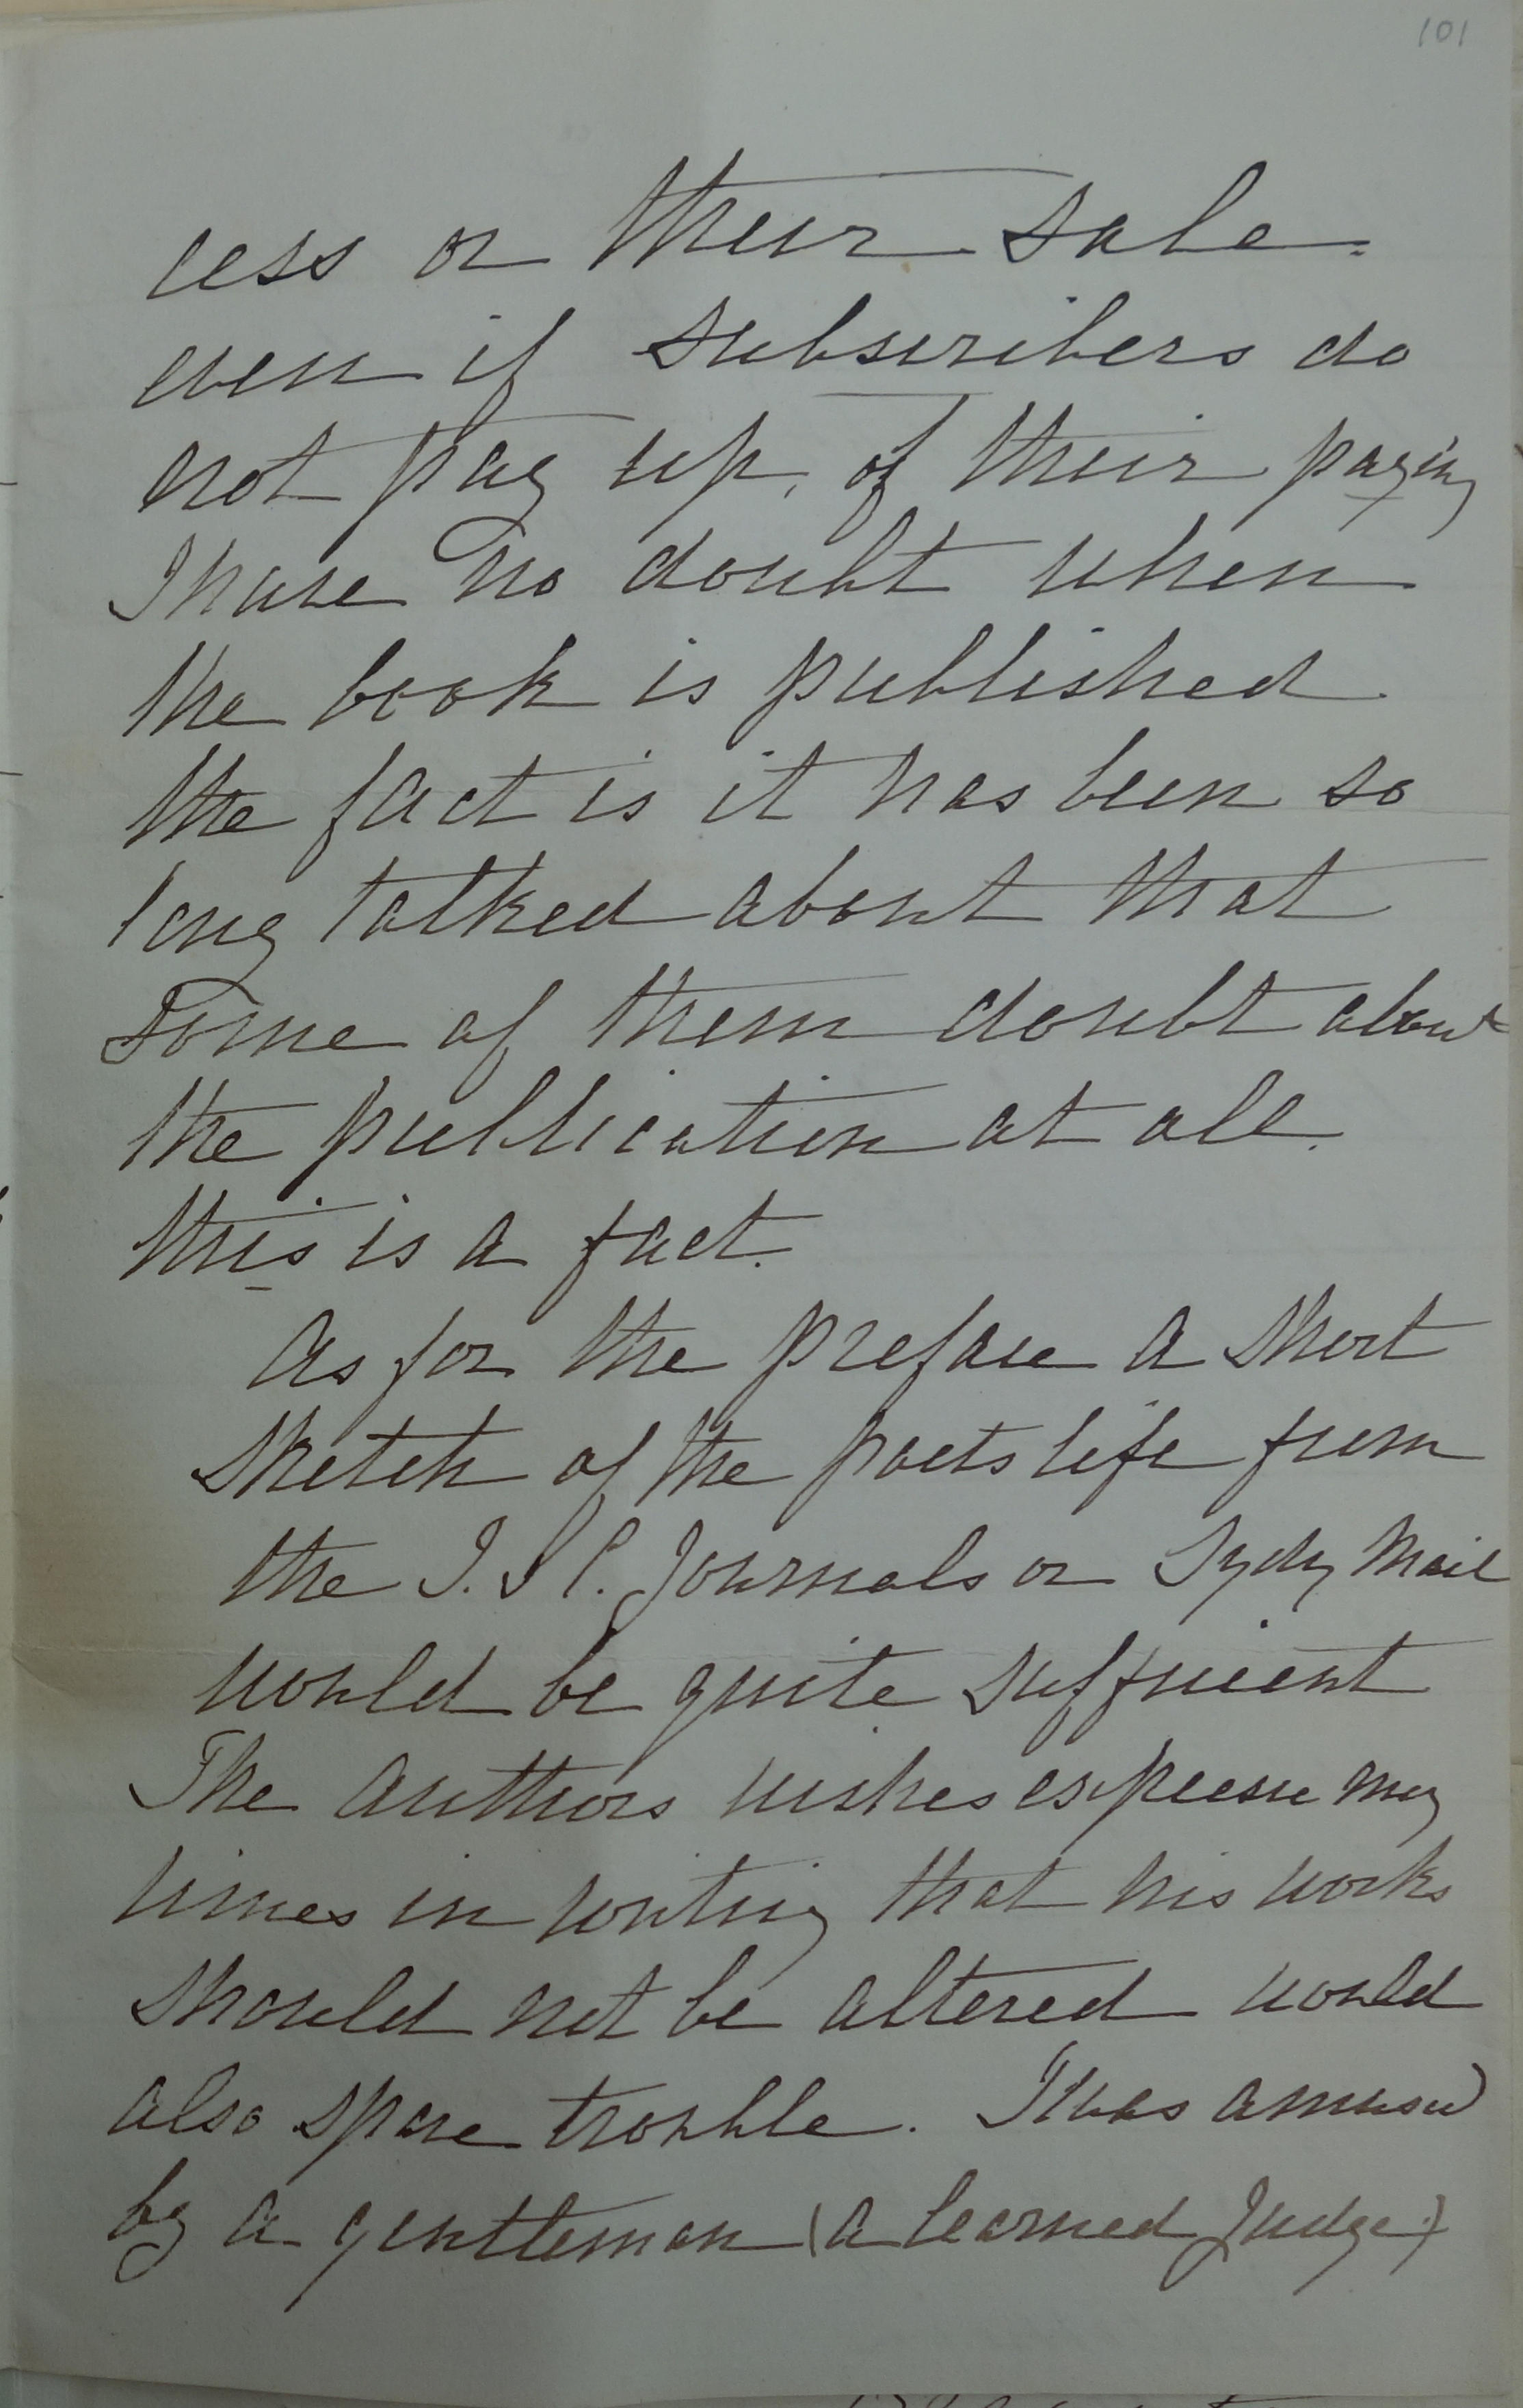 101
cess or their sale.
even if subscribers do
not pay up, of their paying
I have no doubt when
the book is published
the fact is it has been so
long talked about that
some of them doubt about
the publication at all.
this is a fact.
As for the preface a short
sketch of the poets life from
the I. S P. Journals or Sydy Mail
would be quite sufficient
The authors wishes
times in writing that his works
should not be altered would
also spare trouble. I was amused
by a gentleman (a learned Judge)